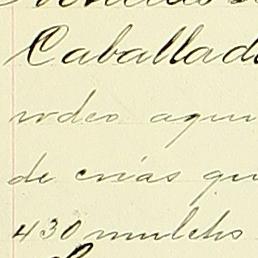 Caballad
rodeo aqui
de crias qu
430 muletos